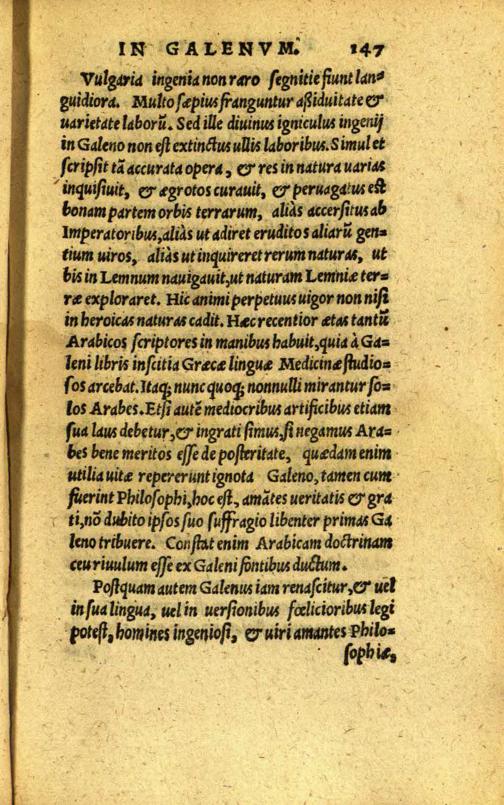 IN GALENVM. 147
Vulgaria ingenia non raro segnitie fiunt lan=
guidiora. Multo sæpius franguntur aßiduitate &
uarietate laborũ. Sed ille diuinus igniculus ingenij
in Galeno non est extinctus ullis laboribus. Simul et
scripsit tã accurata opera, & res in natura varias
inquisiuit, & ægrotos curauit, & peruagatus est
bonam partem orbis terrarum, aliàs accersitus ab
Imperatoribus, aliàs ut adiret eruditos aliarũ gen=
tium uiros, aliàs ut inquireret rerum naturas, ut
bis in Lemnum nauigauit, ut naturam Lemniæ ter=
ræ exploraret. Hic animi perpetuus uigor non nisi
in heroicas naturas cadit. Hæc recentior ætas tantũ
Arabicos scriptores in manibus habuit, quia à Ga=
leni libris inscitia Græcæ linguæ Medicinæ studio=
sos arcebat. Itaq; nunc quoq; nonnulli mirantur so=
los Arabes. Etsi autẽ mediocribus artificibus etiam
sua laus debetur, & ingrati simus, si negamus Ara=
bes bene meritos esse de posteritate, quædam enim
utilia uitæ repererunt ignota Galeno, tamen cum
fuerint Philosophi, hoc est, amãtes ueritatis & gra
ti, nõ dubito ipsos suo suffragio libenter primas Ga
leno tribuere. Constat enim Arabicam doctrinam
ceu riuulum esse ex Galeni fontibus ductum.
Postquam autem Galenus iam renascitur, & uel
in sua lingua, uel in uersionibus fœlicioribus legi
potest, homines ingeniosi, & uiri amantes Philo=
sophiæ,